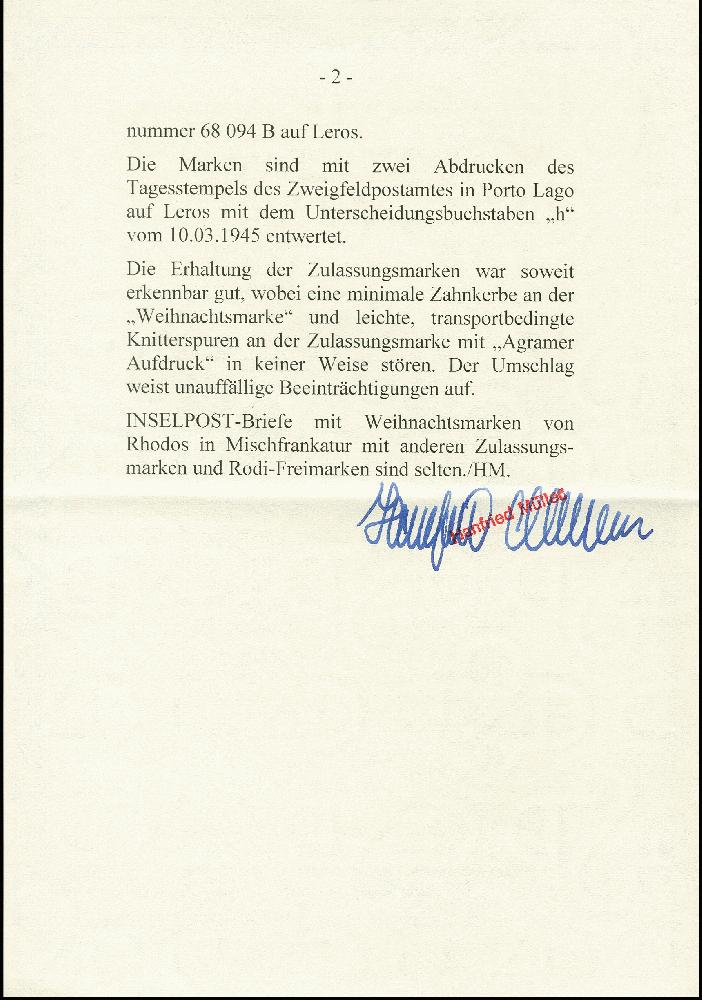 - 2 -
nummer 68 094 B auf Leros.
Die Marken sind mit zwei Abdrucken des
Tagesstempels des Zweigfeldpostamtes in Porto Lago
auf Leros mit dem Unterscheidungsbuchstaben „h“
vom 10.03.1945 entwertet.
Die Erhaltung der Zulassungsmarken war soweit
erkennbar gut, wobei eine minimale Zahnkerbe an der
„Weihnachtsmarke“ und leichte, transportbedingte
Knitterspuren an der Zulassungsmarke mit „Agramer
Aufdruck“ in keiner Weise stören. Der Umschlag
weist unauffällige Beeinträchtigungen auf.
INSELPOST-Briefe mit Weihnachtsmarken von
Rhodos in Mischfrankatur mit anderen Zulassungs-
marken und Rodi-Freimarken sind selten./HM.
Manfried Müller